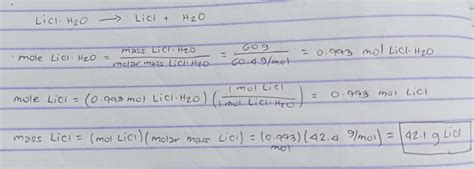 LiCl·H2O → LiCl + H2O
· mole LiCl·H2O = mass LiCl·H2O / molar mass LiCl·H2O = 60g / 60.4 g/mol = 0.993 mol LiCl·H2O
mole LiCl = (0.993 mol LiCl·H2O) (1 mol LiCl / 1 mol LiCl·H2O) = 0.993 mol LiCl
mass LiCl = (mol LiCl)(molar mass LiCl) = (0.993 mol)(42.4 g/mol) = 42.1 g LiCl